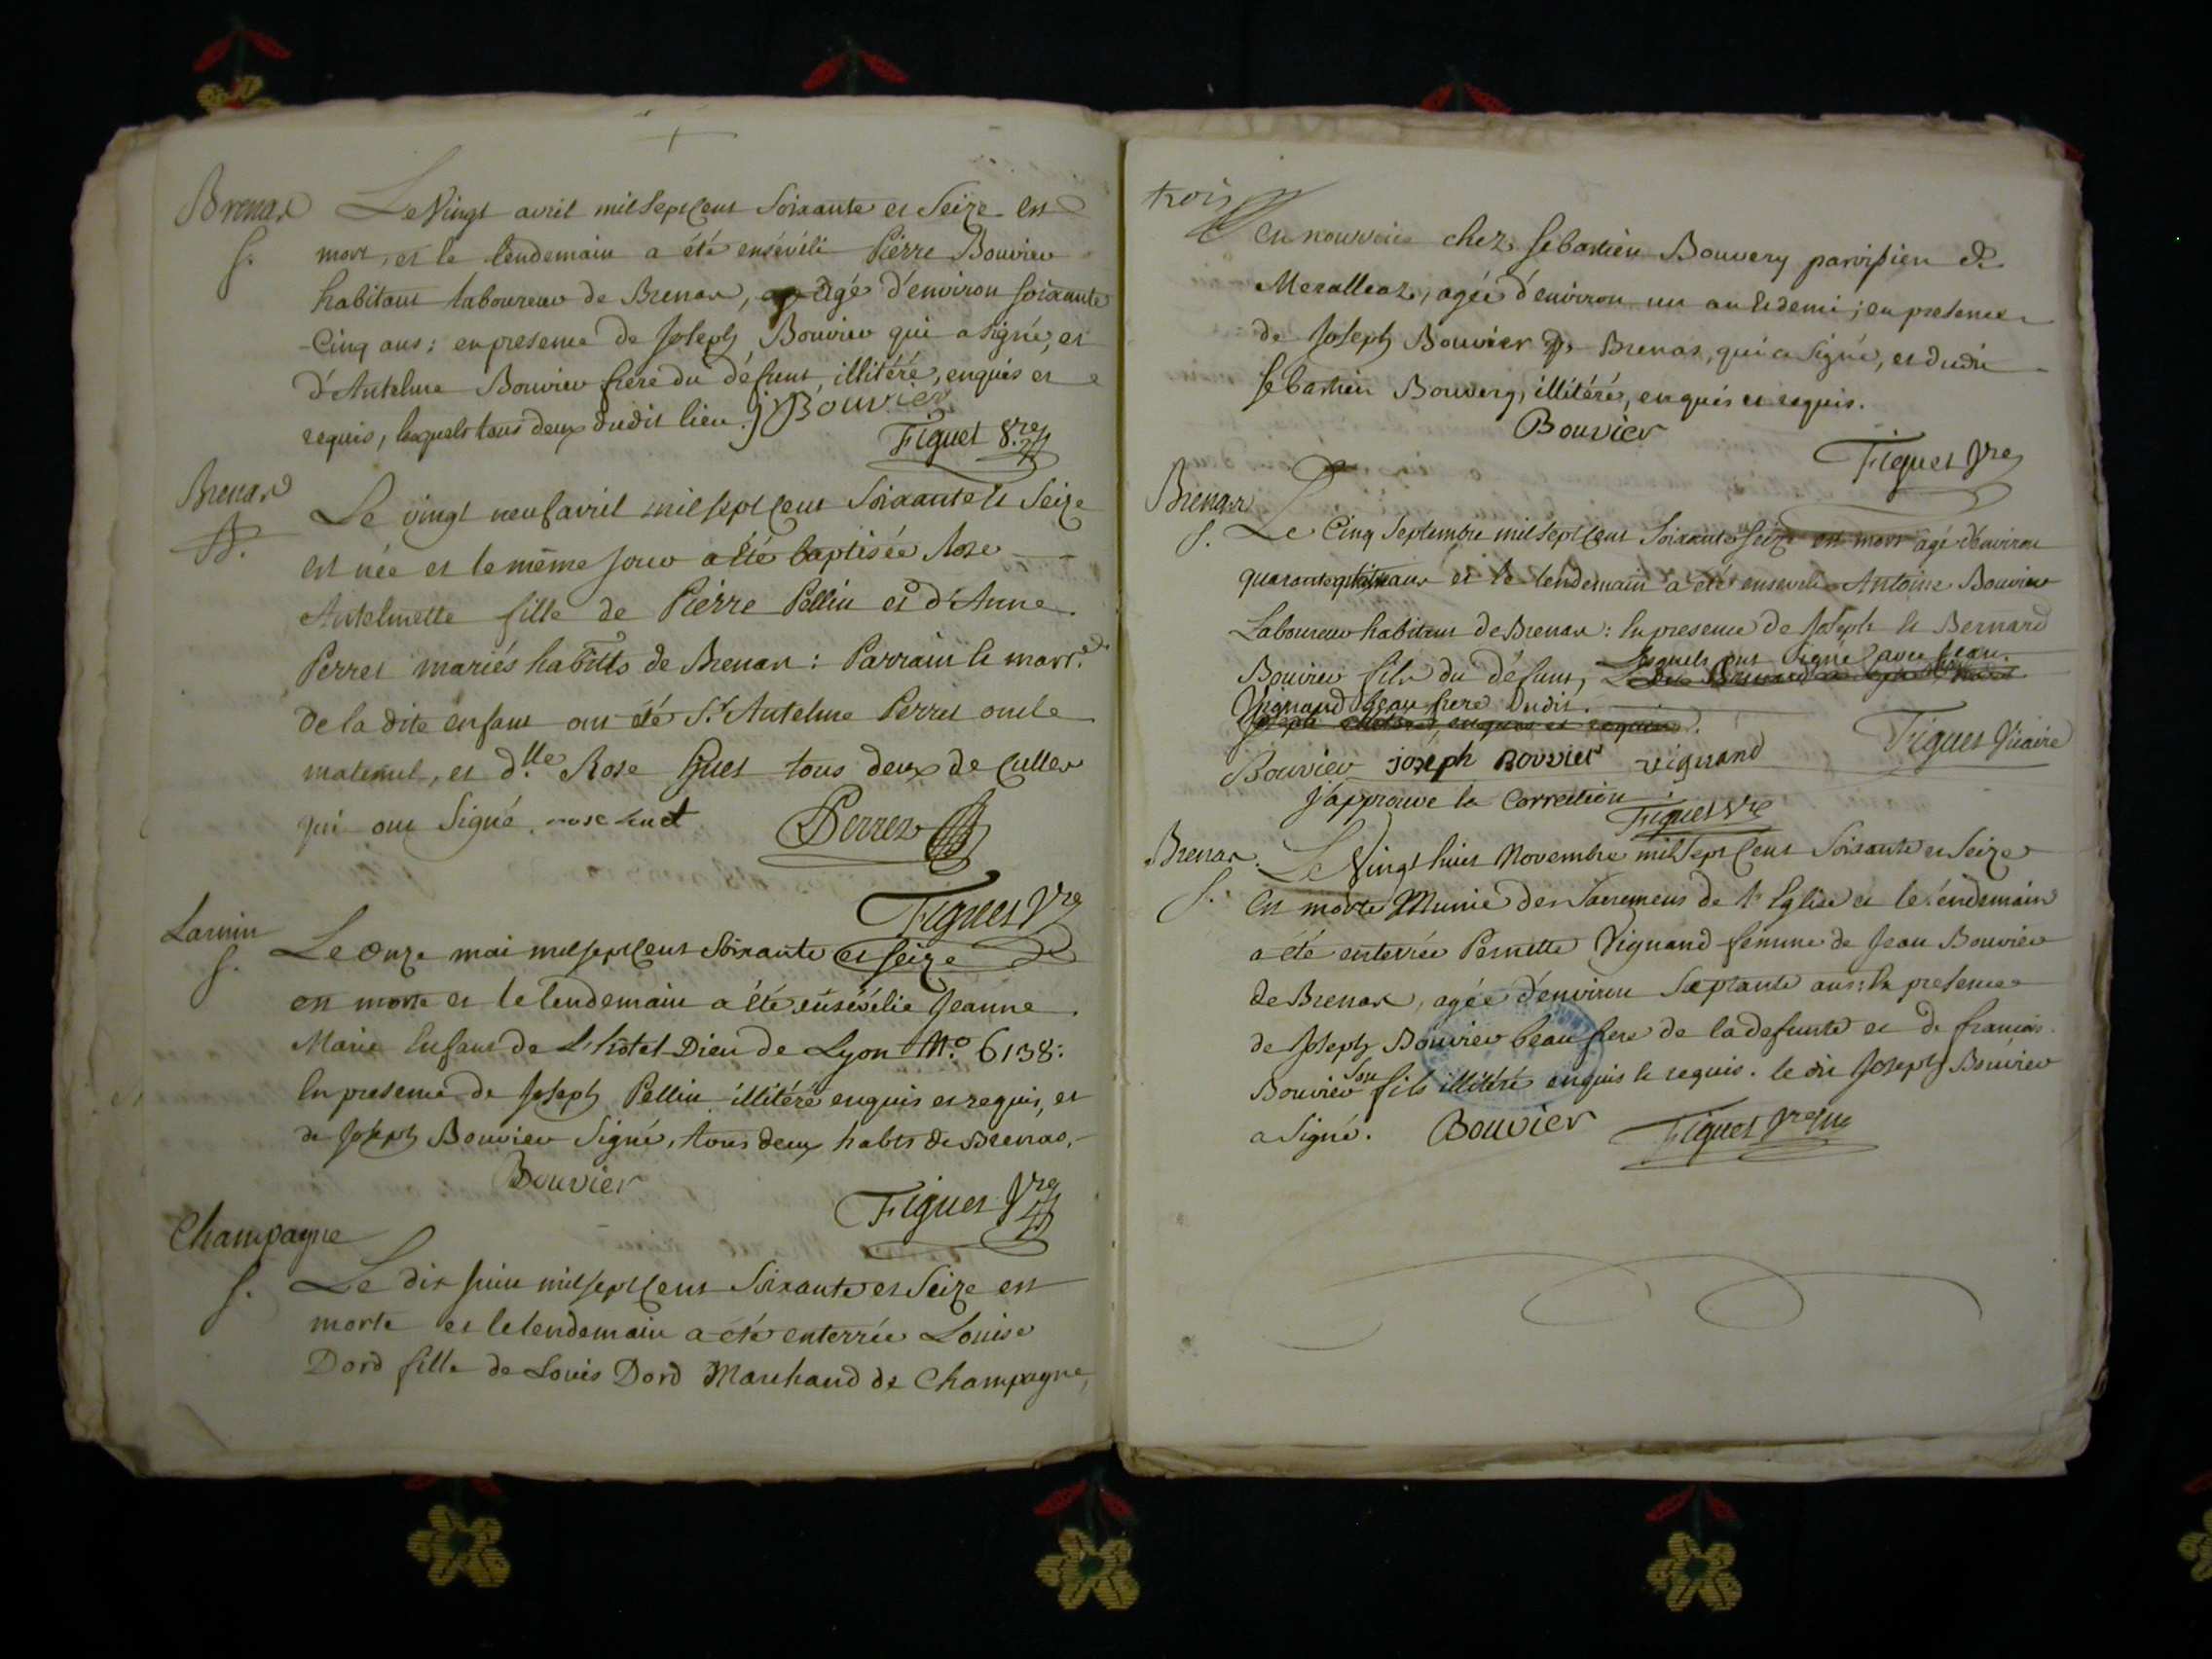 Brenaz
S.
Le Vingt avril mil Sept Cent Soixante et Seize est
mort, et le lendemain a été ensévéli Pierre Bouvier
habitant laboureur de Brenaz, agé d'environ soixante
-Cinq ans: en presence de Joseph Bouvier qui a signé, et
d'Antelme Bouvier frere du défunt, illitéré, enquis et
requis, lesquels tous deux dudit lieu. j Bouvier
Figuet Vre
Brenaz
B.
Le vingt neuf avril mil sept Cent Soixante et Seize
est née et le même jour a été baptisée Rose
Antelmette fille de Pierre Pellin et d'Anne
Perret mariés habitts de Brenaz: Parrain et marr.
de la dite enfant ont été Sr Antelme Perret oncle
maternel, et dlle Rose tous deux de
qui ont Signé. rose
Perret
Figuet Vre
S.
Le onze mai mil sept Cent Soixante et seize
est morte et le lendemain a été ensévélie Jeanne
Marie Enfant de L'hôtel-Dieu de Lyon No. 6138:
En presence de Joseph Pellin illitéré enquis et requis, et
de Joseph Bouvier Signé, tous deux habts de Brenaz.-
Bouvier
Figuet Vre
Champagne
S.
Le dix juin mil sept Cent Soixante et Seize est
morte et le lendemain a été enterrée Louise
Dord fille de Louis Dord Marchand de Champagne,
trois
en nourrice chez Sebastien Bouvery paroissien de
agée d'environ un an et demi; en presence
de Joseph Bouvier de Brenaz, qui a Signé, et dudit
Sebastien Bouvery, illitéré, enquis et requis.
Bouvier
Figuet Vre
Brenaz
S.
Le Cinq Septembre mil sept Cent Soixante Seize est mort agé d'environ
quarante ans et le lendemain a été enseveli Antoine Bouvier
Laboureur habitant de Brenaz: En presence de Joseph et Bernard
Bouvier fils du défunt, Lesquels ont Signé avec Jean
Vignand beau frere dudit.
Joseph illitéré, enquis et requis.
Bouvier joseph Bouvier vignand Figuet Vicaire
J'approuve la Correction:
Figuet Vre
Brenaz.
S.
Le Vingt huit Novembre mil Sept Cent Soixante et Seize
est morte Munie des Sacremens de l'Eglise et le lendemain
a été enterrée Pernette Vignand femme de Jean Bouvier
de Brenaz, agée d'environ Septante ans: En presence
de Joseph Bouvier beau frere de la defunte et de francois
Bouvier Son fils illitéré enquis et requis. le dit Joseph Bouvier
a Signé. Bouvier Figuet Vre